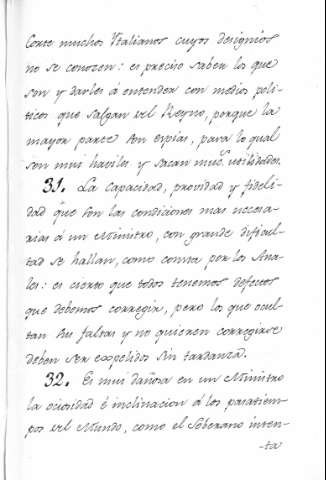 Corte muchos Ytalianos cuyos designios
no se conozen: es preciso saber los que
son y darles á entender con medios poli-
ticos que salgan del Reyno, porque la
mayor parte son espias, para lo qual
son mui haviles y sacan muc.s utilidades.
31. La capacidad, providad y fideli-
dad que son las condiciones mas necesa-
rias á un Ministro, con grande dificul-
tad se hallan, como consta por los Ana-
les: es cierto que todos tenemos defectos
que debemos corregir, pero los que ocul-
tan sus faltas y no quieren corregirse
deben ser expelidos sin tardanza.
32. Es mui dañosa en un Ministro
la ociosidad é inclinacion á los pasatiem-
pos del Mundo, como el Soberano inten-
-ta